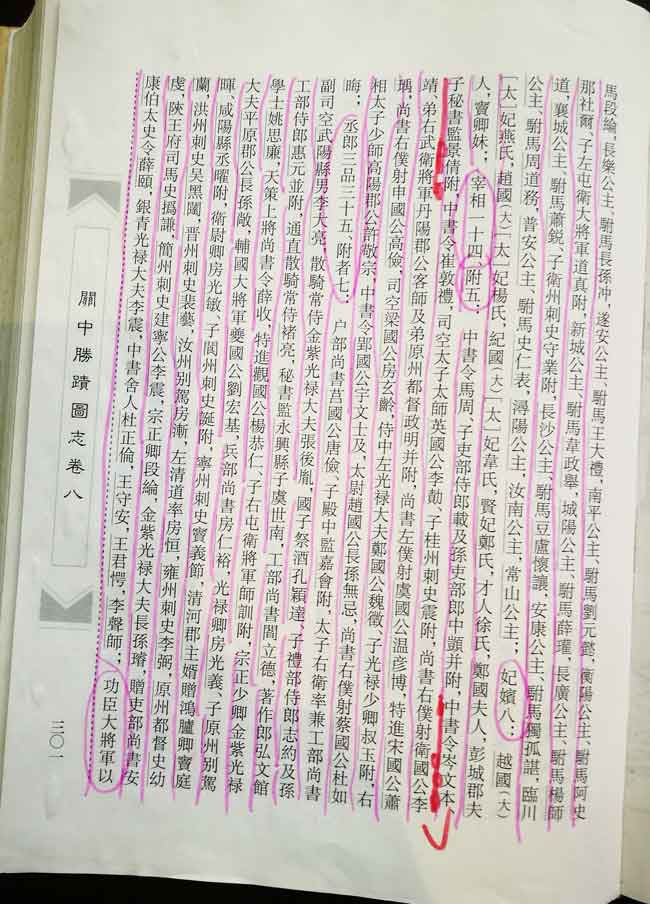 馬段綸，長樂公主、駙馬長孫沖，遂安公主、駙馬王大禮，南平公主、駙馬劉元懿，衡陽公主、駙馬阿史
那社爾、子左屯衛大將軍道真附，新城公主、駙馬韋政舉，城陽公主、駙馬薛瓘，長廣公主、駙馬楊師
道，襄城公主、駙馬蕭銳、子衛州刺史守業附，長沙公主、駙馬豆盧懷讓，安康公主、駙馬獨孤諶，臨川
公主、駙馬周道務，普安公主、駙馬史仁表，潯陽公主，汝南公主，常山公主；妃嬪八：越國（大）
〔太〕妃燕氏，趙國（大）〔太〕妃楊氏，紀國（大）〔太〕妃韋氏，賢妃鄭氏，才人徐氏，鄭國夫人，彭城郡夫
人，竇卿妹；宰相一十四，附五：中書令馬周、子吏部侍郎載及孫吏部郎中顗并附，中書令岑文本、
子秘書監景倩附，中書令崔敦禮，司空太子太師英國公李勣、子桂州刺史震附，尚書右僕射衛國公李
靖、弟右武衛將軍丹陽郡公客師及弟原州都督政明并附，尚書左僕射虞國公温彦博，特進宋國公蕭
瑀，尚書右僕射申國公高儉，司空梁國公房玄齡，侍中左光禄大夫鄭國公魏徵、子光禄少卿叔玉附，右
相太子少師高陽郡公許敬宗，中書令郢國公宇文士及，太尉趙國公長孫無忌，尚書右僕射蔡國公杜如
晦；丞郎三品三十五，附者七：户部尚書莒國公唐儉、子殿中監嘉會附，太子右衛率兼工部尚書
副司空武陽縣男李大亮，散騎常侍金紫光禄大夫張後胤，國子祭酒孔穎達、子禮部侍郎志約及孫
工部侍郎惠元並附，通直散騎常侍褚亮，秘書監永興縣子虞世南，工部尚書閻立德，著作郎弘文館
學士姚思廉，天策上將尚書令薛收，特進觀國公楊恭仁、子右屯衛將軍師訓附，宗正少卿金紫光禄
大夫平原郡公長孫敞，輔國大將軍夔國公劉宏基，兵部尚書房仁裕，光禄卿房光義、子原州别駕
暉、咸陽縣丞曜附，衛尉卿房光敏、子閬州刺史誕附，寧州刺史竇義節，清河郡主婿贈鴻臚卿竇庭
蘭，洪州刺史吴黑闥，晋州刺史裴藝，汝州别駕房漸，左清道率房恒，雍州刺史李弼，原州都督史幼
虔，陝王府司馬史撝謙，簡州刺史建寧公李震，宗正卿段綸，金紫光禄大夫長孫璿，贈吏部尚書安
康伯太史令薛頤，銀青光禄大夫李震，中書舍人杜正倫，王守安，王君愕，李聲師；功臣大將軍以
關中勝蹟圖志卷八
三〇一